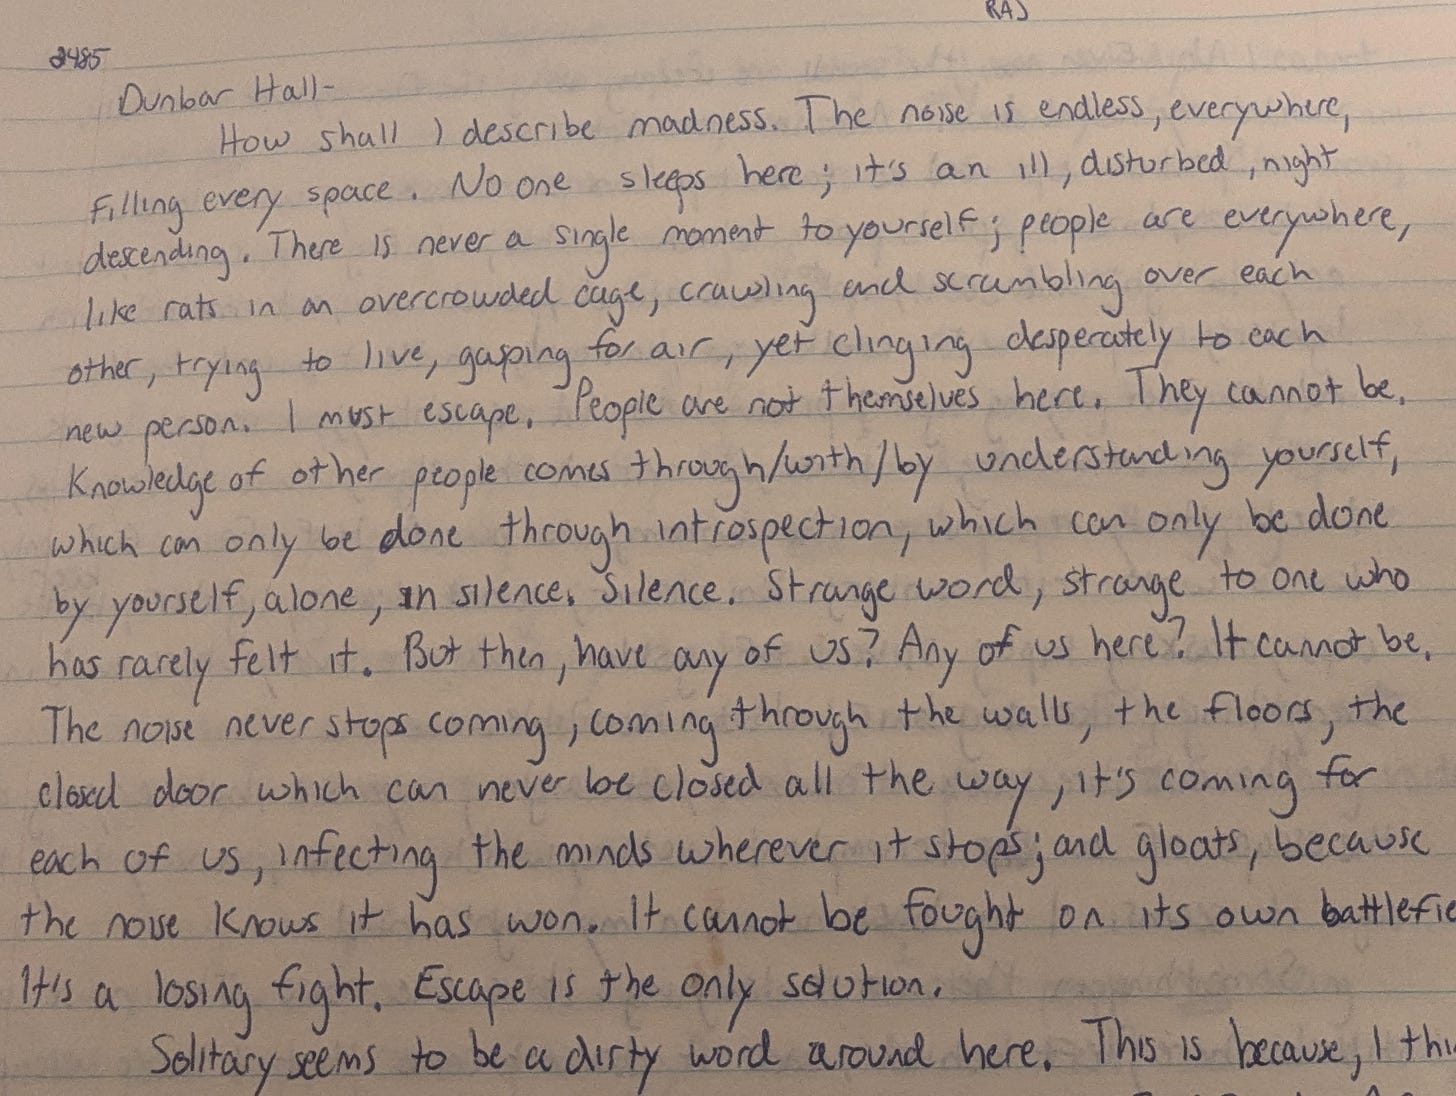 RAJ
2485
Dunbar Hall-
How shall I describe madness. The noise is endless, everywhere,
filling every space. No one sleeps here; it's an ill, disturbed, night
descending. There is never a single moment to yourself; people are everywhere,
like rats in an overcrowded cage, crawling and scrambling over each
other, trying to live, gasping for air, yet clinging desperately to each
new person. I must escape. People are not themselves here. They cannot be.
Knowledge of other people comes through/with/by understanding yourself,
which can only be done through introspection, which can only be done
by yourself, alone, in silence. Silence. Strange word, strange to one who
has rarely felt it. But then, have any of us? Any of us here? It cannot be.
The noise never stops coming, coming through the walls, the floors, the
closed door which can never be closed all the way, it's coming for
each of us, infecting the minds wherever it stops; and gloats, because
the noise knows it has won. It cannot be fought on its own battlefie
It's a losing fight. Escape is the only solution.
Solitary seems to be a dirty word around here. This is because, I thi